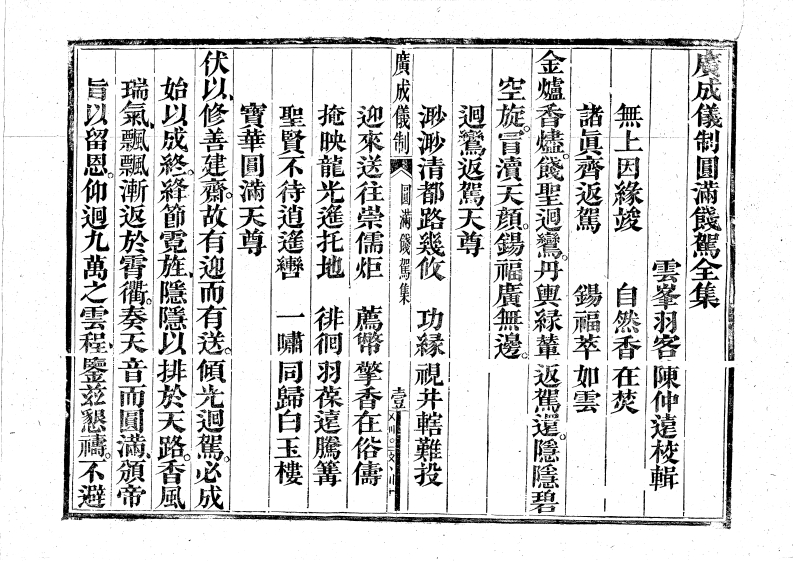 廣成儀制圓滿餞駕全集
雲峯羽客陳仲遠校輯
無上因緣竣　自然香在焚
諸眞齊返駕　錫福萃如雲
金爐香燼。餞聖迴鸞。丹輿緑輦返駕還。隱隱碧
空旋。冒瀆天顔。錫福廣無邊。
迴鸞返駕天尊
渺渺清都路幾攸　功緣視井轄難投
廣成儀制　圓滿餞駕集　壹
迎來送往崇儒炬　薦幣擎香在俗儔
掩映龍光進托地　徘徊羽葆遠騰篝
聖賢不待逍遙轡　一嘯同歸白玉樓
寶華圓滿天尊
伏以、修善建齋。故有迎而有送。傾光迴駕。必成
始以成終。絳節霓旌、隱隱以排於天路。香風
瑞氣、飄飄漸返於霄衢。奏天音而圓滿、頒帝
旨以留恩。仰迴九萬之雲程、鑒玆懇禱。不避